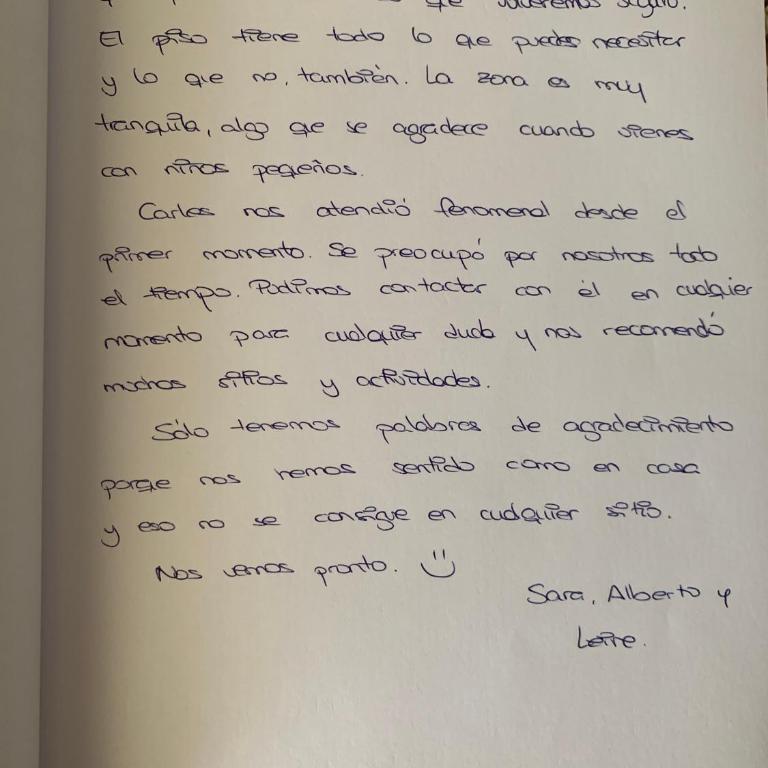 que volveremos seguro.
El piso tiene todo lo que puedes necesitar
y lo que no, también. La zona es muy
tranquila, algo que se agradece cuando vienes
con niños pequeños.
Carles nos atendió fenomenal desde el
primer momento. Se preocupó por nosotros todo
el tiempo. Pudimos contactar con él en cualquier
momento para cualquier duda y nos recomendó
muchos sitios y actividades.
Sólo tenemos palabras de agradecimiento
porque nos hemos sentido como en casa
y eso no se consigue en cualquier sitio.
Nos vemos pronto. :)
Sara, Alberto y
Leire.